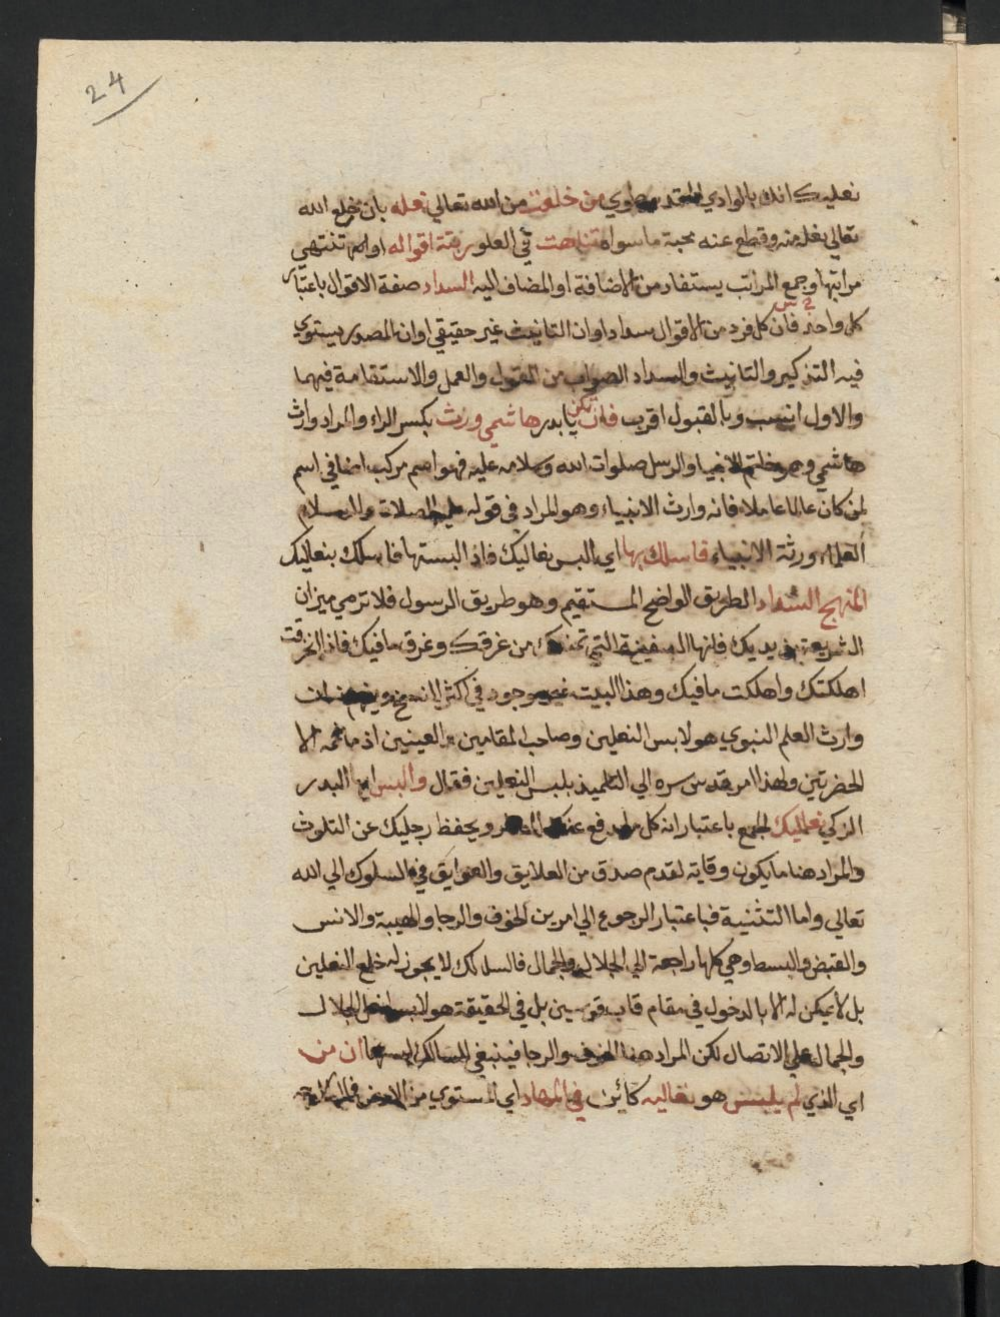 24
نعليك انك بالوادي المقدس طوي من خلعت من الله تعالي نعله بان خلع الله
تعالي نعله منه وقطع عنه محبة ما سواه تناهت في العلو رتقة اقواله او لم تنتهي
مراتبها وجمع المراتب يستفاد من الاضافة او المضاف اليه السداد صفة الاقوال باعتبار
كل واحد فان كل فرد من الاقوال سداد او ان التانيث غير حقيقي او ان المصدر يستوي
فيه التذكير والتانيث والسداد الصواب من القول والعمل والاستقامة فيهما
والاول انسب وبالقبول اقرب فان تكن يا بدر هاشمي ورث بكسر الراء والمراد وارث
هاشمي وهو خاتم الانبيا والرسل صلوات الله وسلامه عليه فهو اسم مركب اضافي اسم
لمن كان عالما عاملا فانه وارث الانبياء وهو المراد في قوله عليه الصلاة والسلام
العلماء ورثة الانبياء فاسلك بها اي البس نعاليك فاذ البستها فاسلك بنعاليك
المنهج السداد الطريق الواضح المستقيم وهو طريق الرسول فلا ترمي ميزان
الشريعة من يديك فانها السفينة التي تمنعك من غرقك وغرق ما فيك فاذا انخرقت
اهلكتك واهلكت ما فيك وهذا البيت غير موجود في اكثر النسخ ويفهم منه ان
وارث العلم النبوي هو لابس النعلين وصاحب المقامين والعينين اذ ما ثمه الا
الحضرتين ولهذا امر قدس سره الي التلميذ بلبس النعلين فقال والبس ايها البدر
الزكي نعاليك الجمع باعتبار انه كل ما يدفع عنك الضرر ويحفظ رجليك عن التلوث
والمراد هنا ما يكون وقاية لقدم صدق من العلايق والعوايق في السلوك الي الله
تعالي واما التثنية فباعتبار الرجوع الي امرين الخوف والرجا والهيبة والانس
والقبض والبسط وهي كلها راجعة الي الجلال والجمال فالسالك لا يجوز له خلع النعلين
بل لا يمكن له الا بالدخول في مقام قاب قوسين بل في الحقيقة هو لابس نعل الجلال
والجمال علي الاتصال لكن المراد هنا الخوف والرجا فينبغي للسالك لبسهما ان من
اي الذي لم يلبس هو نعاليه كائن في المهاد اي المستوي من الارض